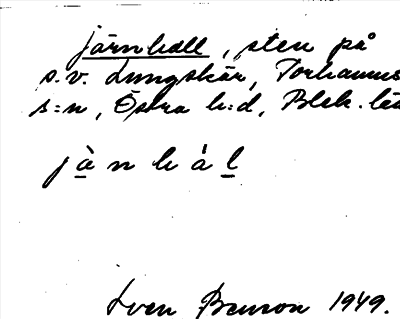 järnhall, sten på
s.v. Lungskär, Torhamns
s:n, Östra h:d, Blek. län
j à n h á l
Sven Benson 1949.